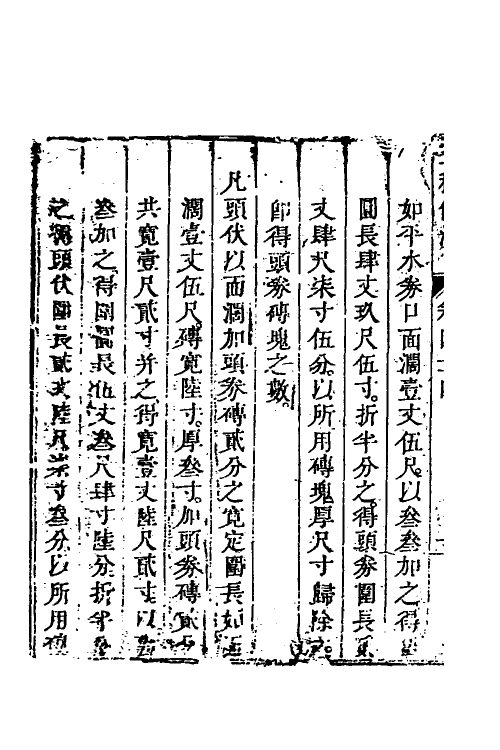 如平水券口面濶壹丈伍尺。以叁叁加之得
圓長肆丈玖尺伍寸。折半分之。得頭券圍長貳
丈肆尺柒寸伍分。以所用磚塊厚尺寸歸除之。
即得頭券磚塊之數。
凡頭伏以面濶加頭券磚貳分之寬定圍長。如面
濶壹丈伍尺。磚寬陸寸。厚叁寸。加頭券磚貳分
共寬壹尺貳寸。并之。得寬壹丈陸尺貳寸。以叁
叁加之。得圓圍長伍丈叁尺肆寸陸分。折半分
之。得頭伏圍長貳丈陸尺柒寸叁分。以所用磚